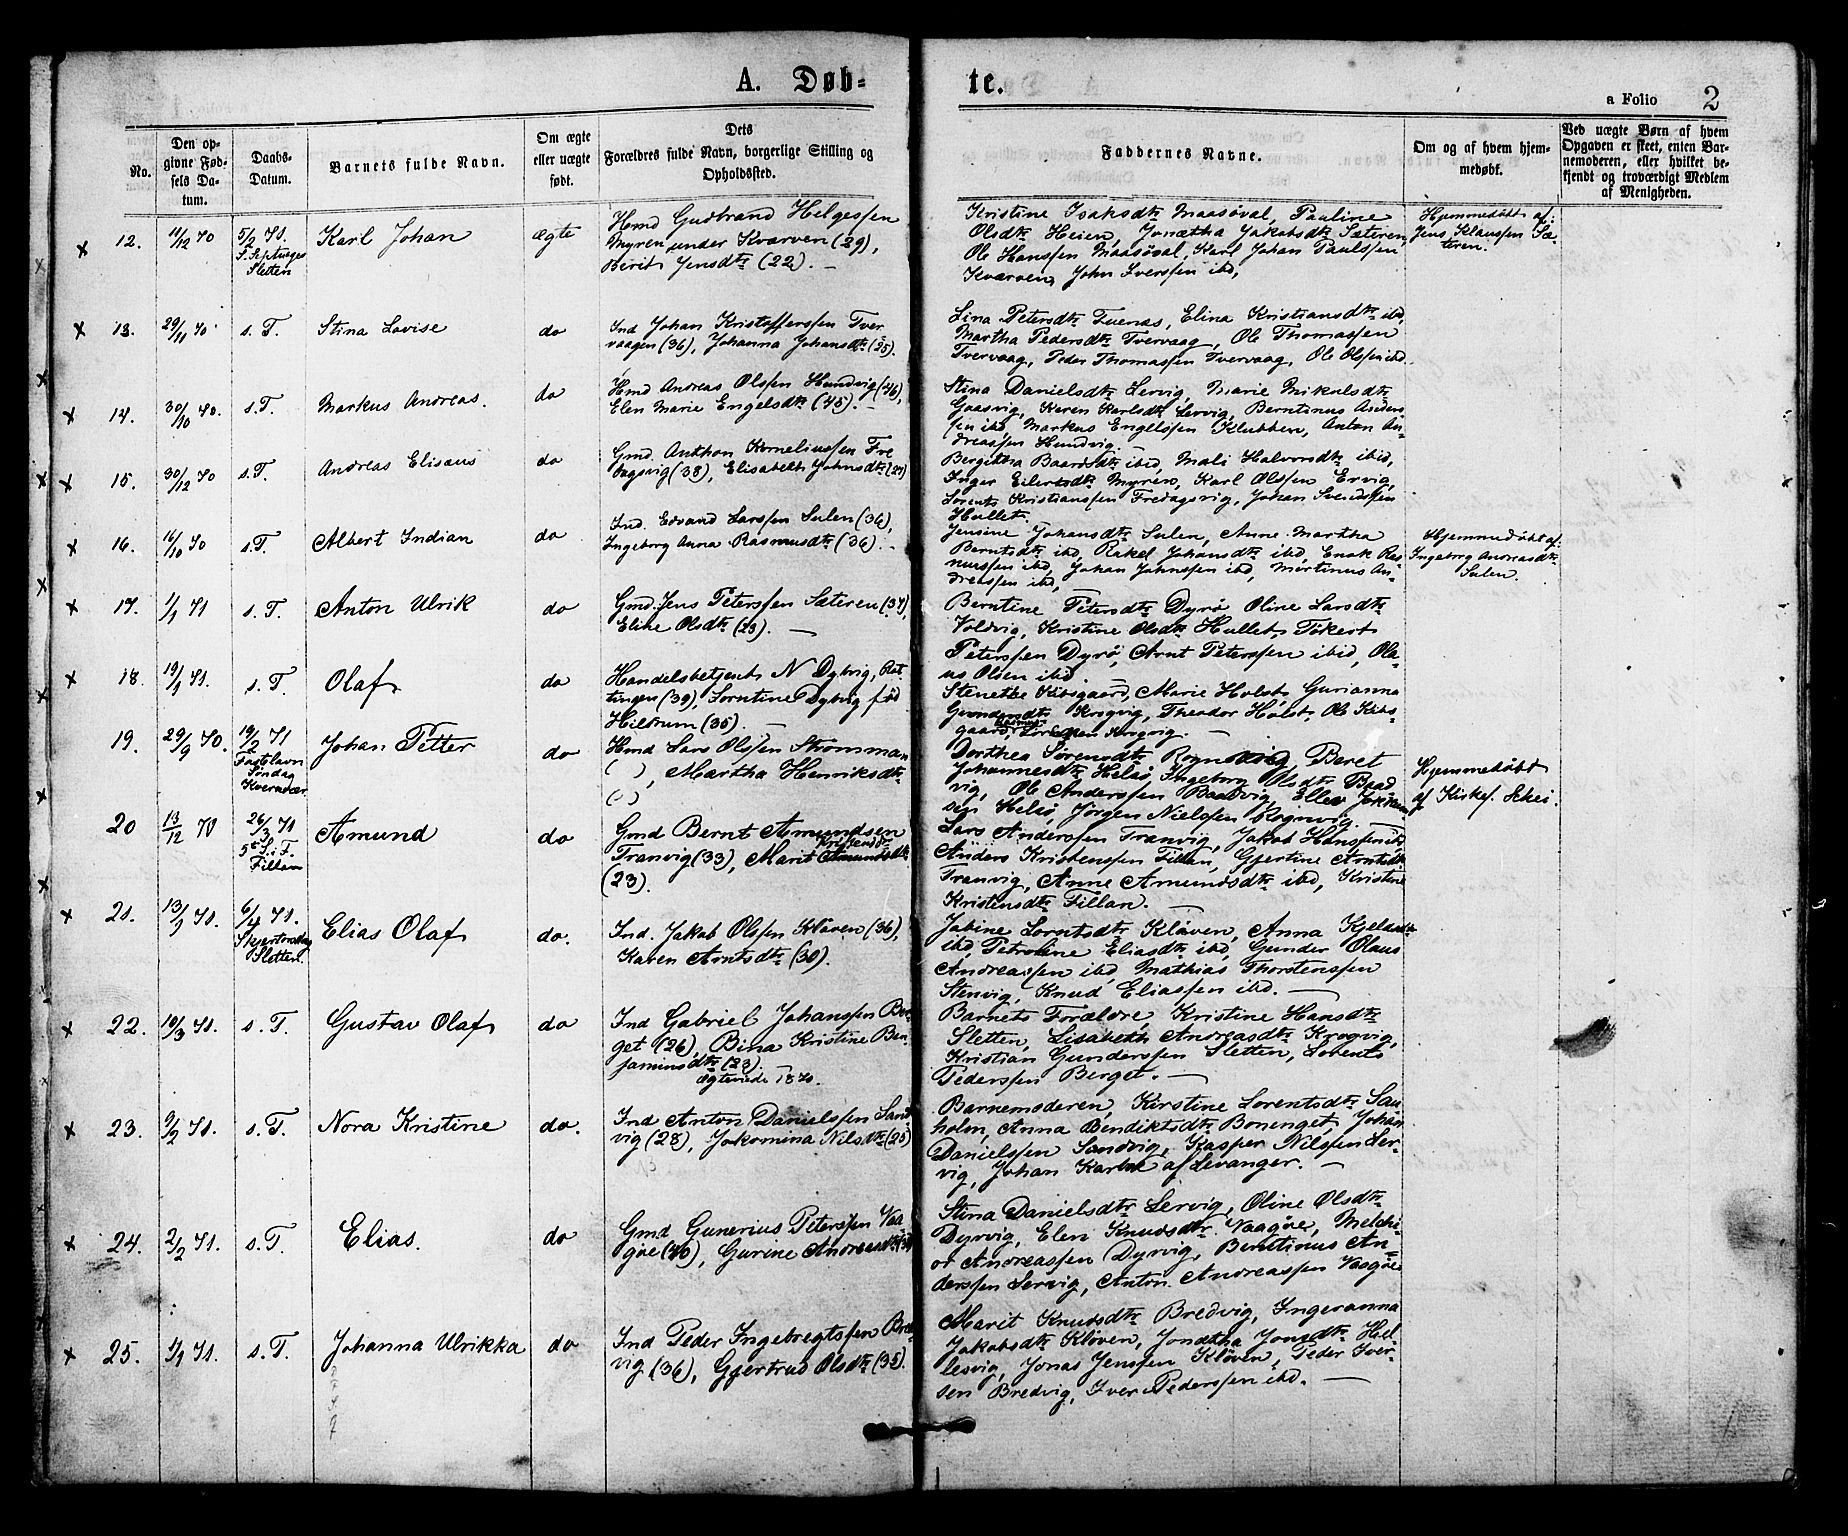 A. Døb-
te.
a Folio 2
No.
Den op-
givne Fød-
sels Da-
tum.
Daabs-
Datum.
Barnets fulde Navn.
Om ægte
eller uægte
født.
Dets
Forældres fulde Navn, borgerlige Stilling og
Opholdssted.
Faddernes Navne.
Om og af hvem hjem-
medøbt.
Ved uægte Børn af hvem
Opgaven er skeet, enten Bar-
nemoderen, eller hvilket be-
kjendt og troværdigt Medlem
af Menigheden.
12. 11/12 70 5/2 71. Karl Johan ægte
S. Septuages
Sletten
Hmd Gudbrand Helgessen
Myren under Kværven (29),
Berit Jensdtr (22). —
Kristine Isaksdtr Maasøval, Pauline
Olsdtr Heien, Jonetha Jakobsdtr Sæteren,
Ole Hanssen Maasøval, Karl Johan Paulssen
Kværven, John Iverssen ibd,
Hjemmedøbt af:
Jens Klaussen Sæ-
teren.
13. 29/11 70 s. T. Stina Lovise do
Ind Johan Kristofferssen Tver
vaagen (36), Johanna Johansdtr (25).
Lina Petersdtr Fuenæs, Elina Kristiansdtr ibd,
Martha Pedersdtr Tvervaag, Ole Thomassen
Tvervaag, Peder Thomassen Tvervaag, Ole Olsen ibd.
14. 30/10 70. s. T. Markus Andreas. do
Hmd Andreas Olssen Hundvig (46),
Elen Marie Engelsdtr (45). —
Stina Danielsdtr Lervig, Marie Mikalsdtr
Gaasvig, Karen Karlsdtr Lervig, Berntinus Anders-
sen ibd, Markus Engelssen Klubben, Anton An-
dreassen Hundvig. —
15. 30/12 70 s. T. Andreas Elisæus do
Gmd. Anthon Korneliussen Fre
dagsvig (38), Elisabeth Johnsdtr (27)
Bergitha Baardsdtr ibid, Mali Halvorsdtr ibid,
Inger Eilertsdtr Myren, Karl Olssen Ervig,
Lorents Kristianssen Fredagsvig, Johan Svendssen
Hullet.
16. 14/10 70 s. T. Albert Indian do
Ind. Edvard Larssen Sulen (36),
Ingeborg Anna Rasmusdtr (36). —
Jensine Johansdtr Sulen, Anne Martha
Berntsdtr ibd, Rakel Johansdtr ibd, Enok Ras-
mussen ibd, Johan Johnssen ibd, Martinus An-
dreassen ibd,
Hjemmedøbt af
Ingeborg Andreasdtr
Sulen.
17. 1/1 71 s. T. Anton Ulrik do
Gmd. Jens Peterssen Sæteren (37),
Eline Olsdtr (23). —
Berntine Petersdtr Dyrø, Oline Larsdtr
Voldvig, Kristine Olsdtr Hullet, Tøkert
Peterssen Dyrø, Arnt Peterssen ibid, Ola-
us Olsen ibid.
18. 19/1 71. s. T. Olaf do
Handelsbetjent N Dybvig, Rat
tingen (30), Sorntine Dybvig fød
Hildrum (35). —
Stenethe Kibsgaard, Marie Holst, Gurianna
Gundersdtr Krogvig, Theodor Holst, Ole Kibs-
gaard, Krogvig. —
19. 29/9 70. 19/2 71 Johan Petter do
Fastelavn
Søndag
Kvernvær.
Hmd Lars Olssen Strømman
( ), Martha Henriksdtr
( )
Dorthea Sørensdtr Rognsvig, Beret
Johannesdtr Helsø, Ingeborg Olsdtr Baad
vig, Ole Anderssen Baadvig, Ellev
sen Helsø, Jørgen Nielssen Rognsvig. —
Hjemmedøbt
af Kirkes. Schei.
20 13/12 70 26/3 71 Amund do
5te S. i F.
Fillan
Gmd Bernt Amundsen
Tranvig (33), Marit Kristensdtr Amundsdtr
(23).
Lars Anderssen Tranvig, Jakob Hanssen ibd,
Anders Kristenssen Fillan, Gjertine Arntsdtr
Tranvig, Anne Amundsdtr ibd, Kristine
Kristensdtr Fillan. —
21. 13/2 71. 6/4 71. Elias Olaf do.
Skjærtorsdag
Sletten.
Ind. Jakob Olssen Kløven (36),
Karen Arntsdtr (30).
Jakine Lorntsdtr Kløven, Anna Kjelsdtr
ibd, Petroline Eliasdtr ibd, Gunder Olaus
Andreassen ibd, Mathias Thorstenssen
Stenvig, Knud Eliassen ibd. —
22. 10/3 71. s. T. Gustav Olaf do
Ind Gabriel Johanssen Ber
get (26), Bina Kristine Ben-
jaminsdtr (23).
Ægteviede 1870.
Barnets Forældre, Kristine Hansdtr
Sletten, Lisabeth Andreasdtr Krogvig,
Kristian Gunderssen Sletten, Lorents
Pederssen Berget. —
23. 9/2 71. s. T. Nora Kristine do.
Ind Anton Danielssen Sand
vig (28), Jakomina Nilsdtr (25)
Barnemoderen, Kirstine Lorentsdtr Sau
holm, Anna Bendiktsdtr Bonenget, Johan
Danielssen Sandvig, Kasper Nilssen Ler-
vig, Johan af Levanger. —
24. 2/2 71. s. T. Elias. do
Gmd Gunerius Peterssen Vaa-
gøe (46), Gurine Andreasdtr
Stina Danielsdtr Lervig, Oline Olsdtr
Dyrvig, Elen Knudsdtr Vaagøe, Melchi-
or Andreassen Dyrvig, Berntinus An-
derssen Lervig, Anton Andreassen Vaagøe
25. 1/1 71. s. T. Johanna Ulrikka do
Ind Peder Ingebregtssen Bred
vig (36), Gjertrud Olsdtr (35).
Marit Knudsdtr Bredvig, Ingeranna
Jakobsdtr Kløven, Jonetha Jonsdtr Hel-
lesvig, Jonas Jenssen Kløven, Peder Iver-
sen Bredvig, Iver Pederssen ibd. —